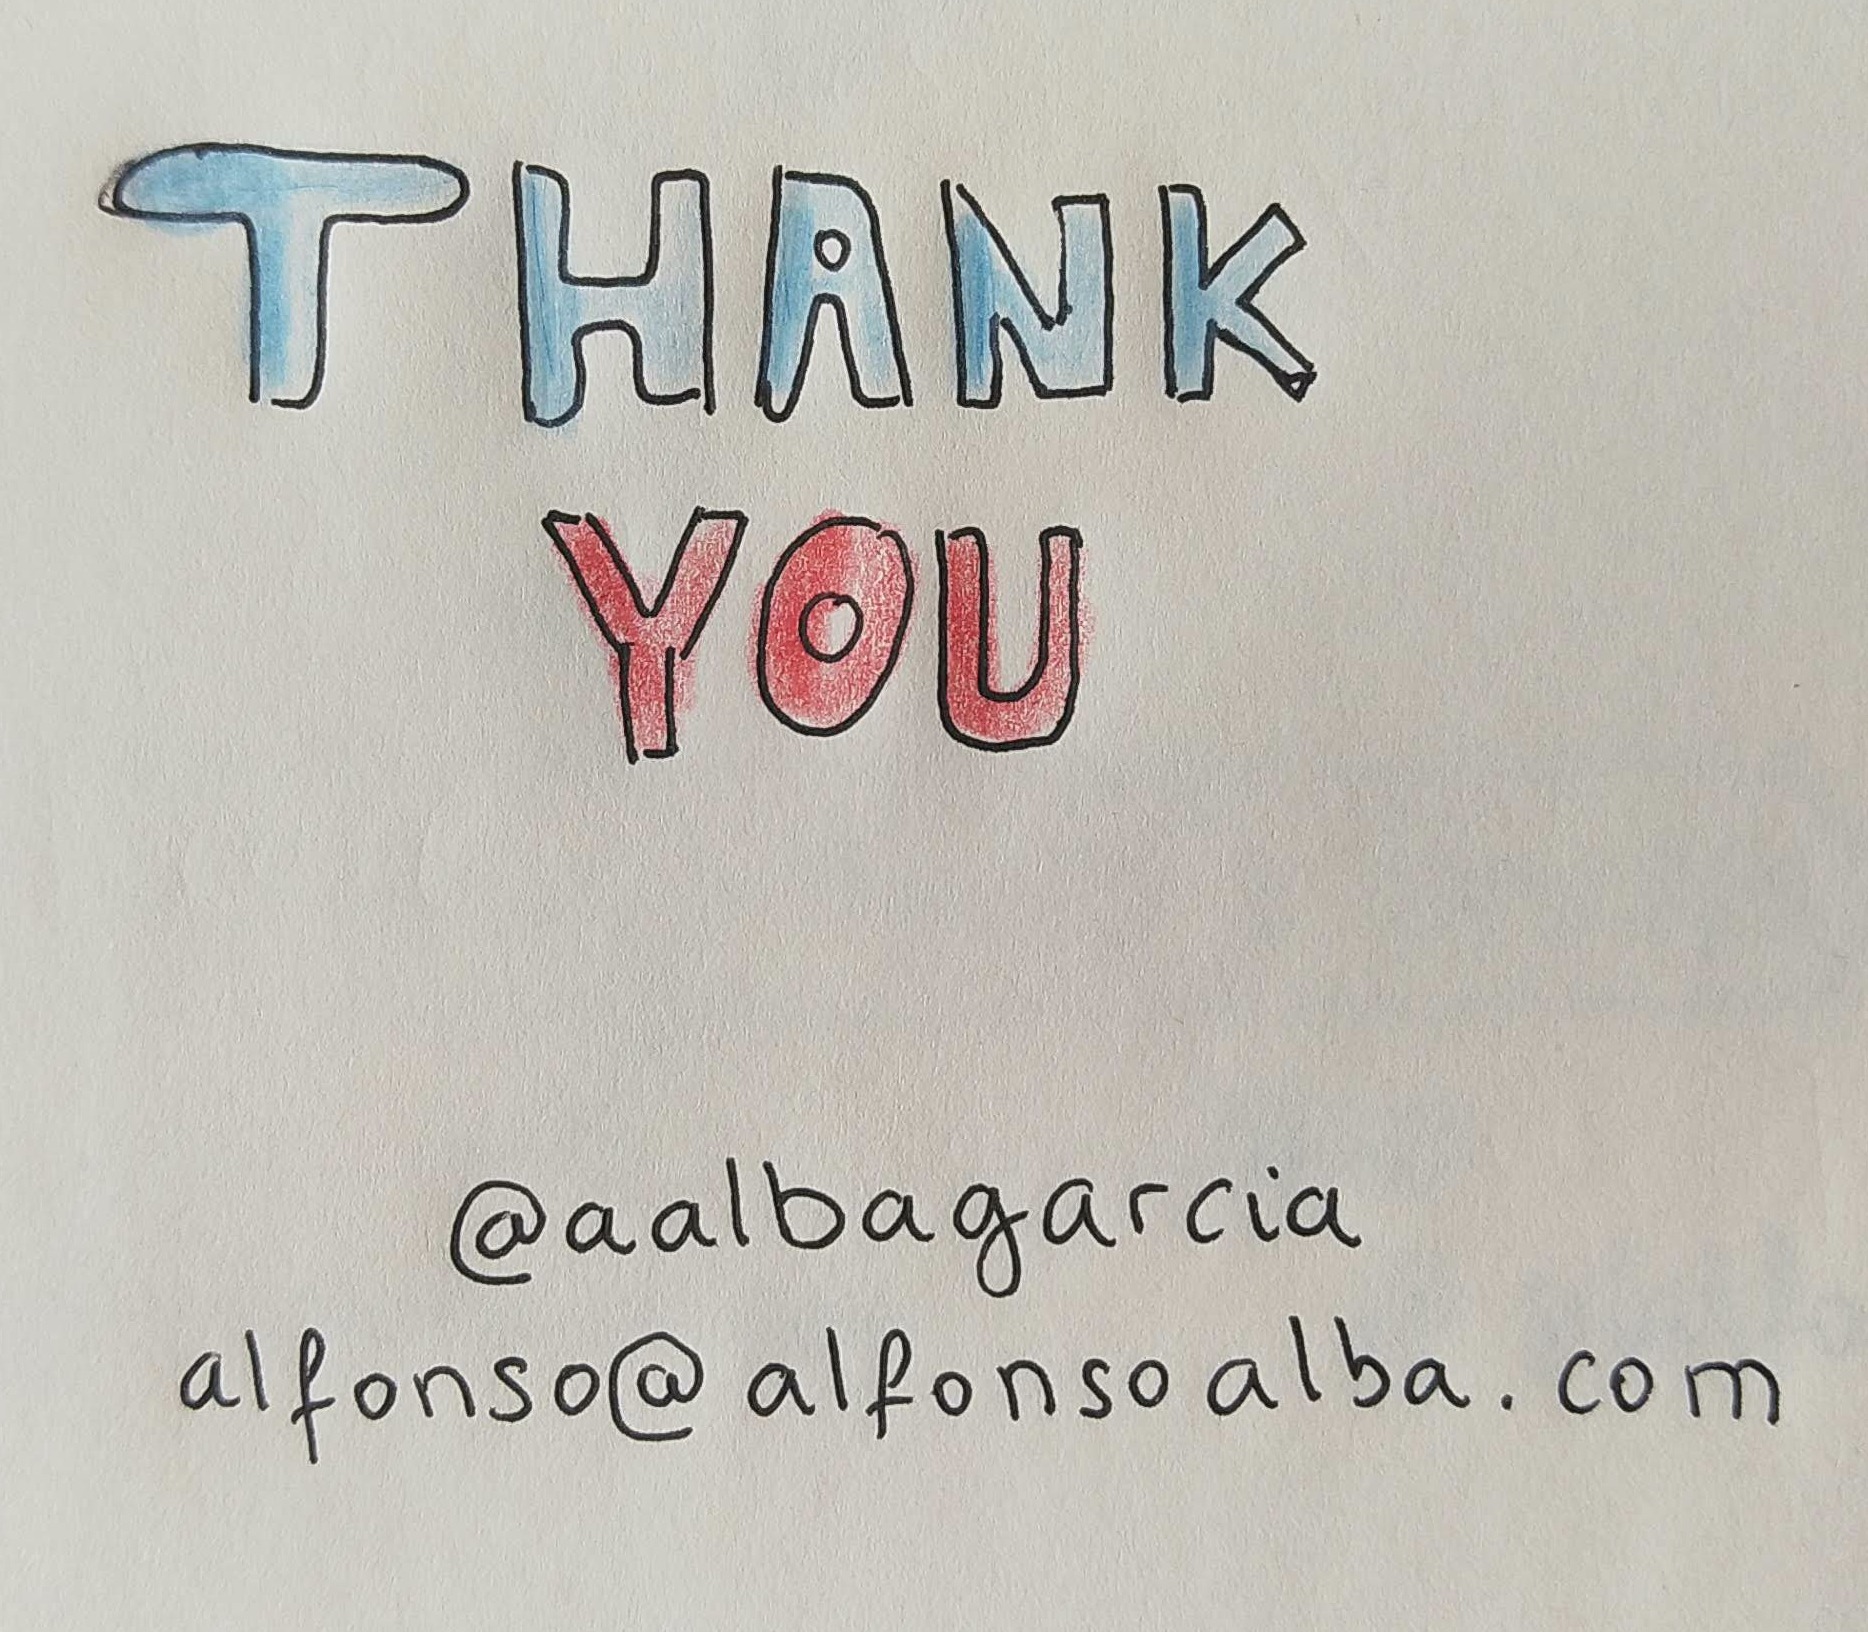 THANK
YOU
@aalbagarcia
alfonso@alfonsoalba.com